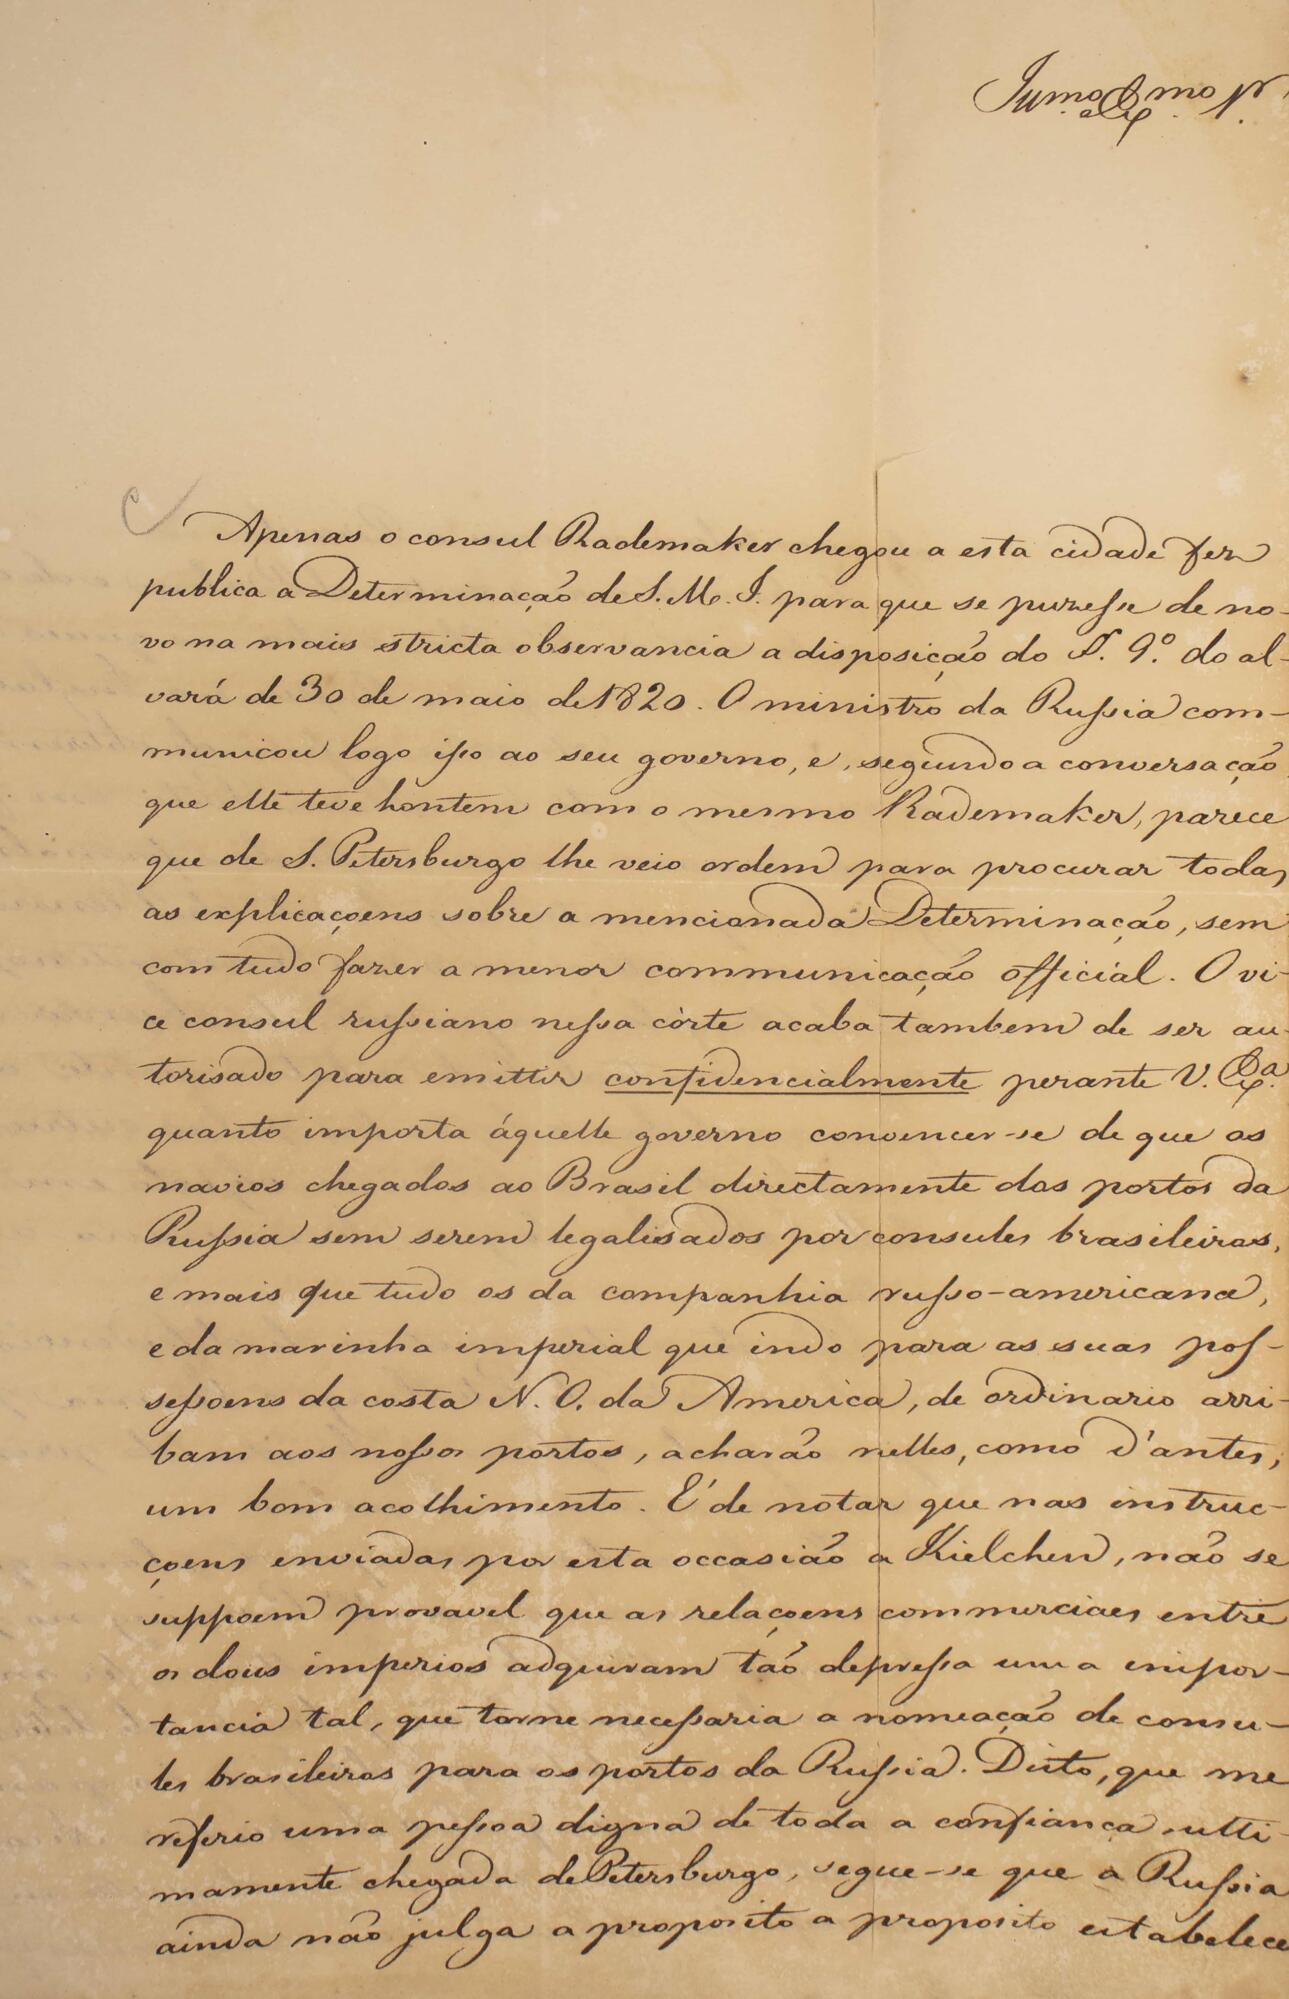 Illmo. e Exmo. Sr.
Apenas o consul Rademaker chegou a esta cidade fez
publica a Determinação de S. M. I. para que se puzesse de no-
vo na mais stricta observancia a disposição do §. 9º. do al-
vará de 30 de maio de 1820. O ministro da Russia com-
municou logo isso ao seu governo, e, segundo a conversação
que elle teve hontem com o mesmo Rademaker, parece
que de S. Petersburgo lhe veio ordem para procurar todas
as explicaçoens sobre a mencionada Determinação, sem
com tudo fazer a menor communicação official. O vi-
ce consul russiano nessa côrte acaba tambem de ser au-
torisado para emittir confidencialmente perante V. Exa.
quanto importa áquelle governo convencer-se de que os
navios chegados ao Brasil directamente dos portos da
Russia sem serem legalisados por consules brasileiros,
e mais que tudo os da companhia russo-americana,
e da marinha imperial que indo para as suas pos-
sessoens da costa N. O. da America, de ordinario arri-
bam aos nossos portos, acharão nelles, como d'antes,
um bom acolhimento. É de notar que nas instruc-
çoens enviadas por esta occasião a Kielchen, não se
suppoem provavel que as relaçoens commerciaes entre
os dous imperios adquiram tão depressa uma impor-
tancia tal, que torne necessaria a nomeação de consu-
les brasileiros para os portos da Russia. Disto, que me
referio uma pessoa digna de toda a confiança ulti-
mamente chegada de Petersburgo, segue-se que a Russia
ainda não julga a proposito a proposito estabelece